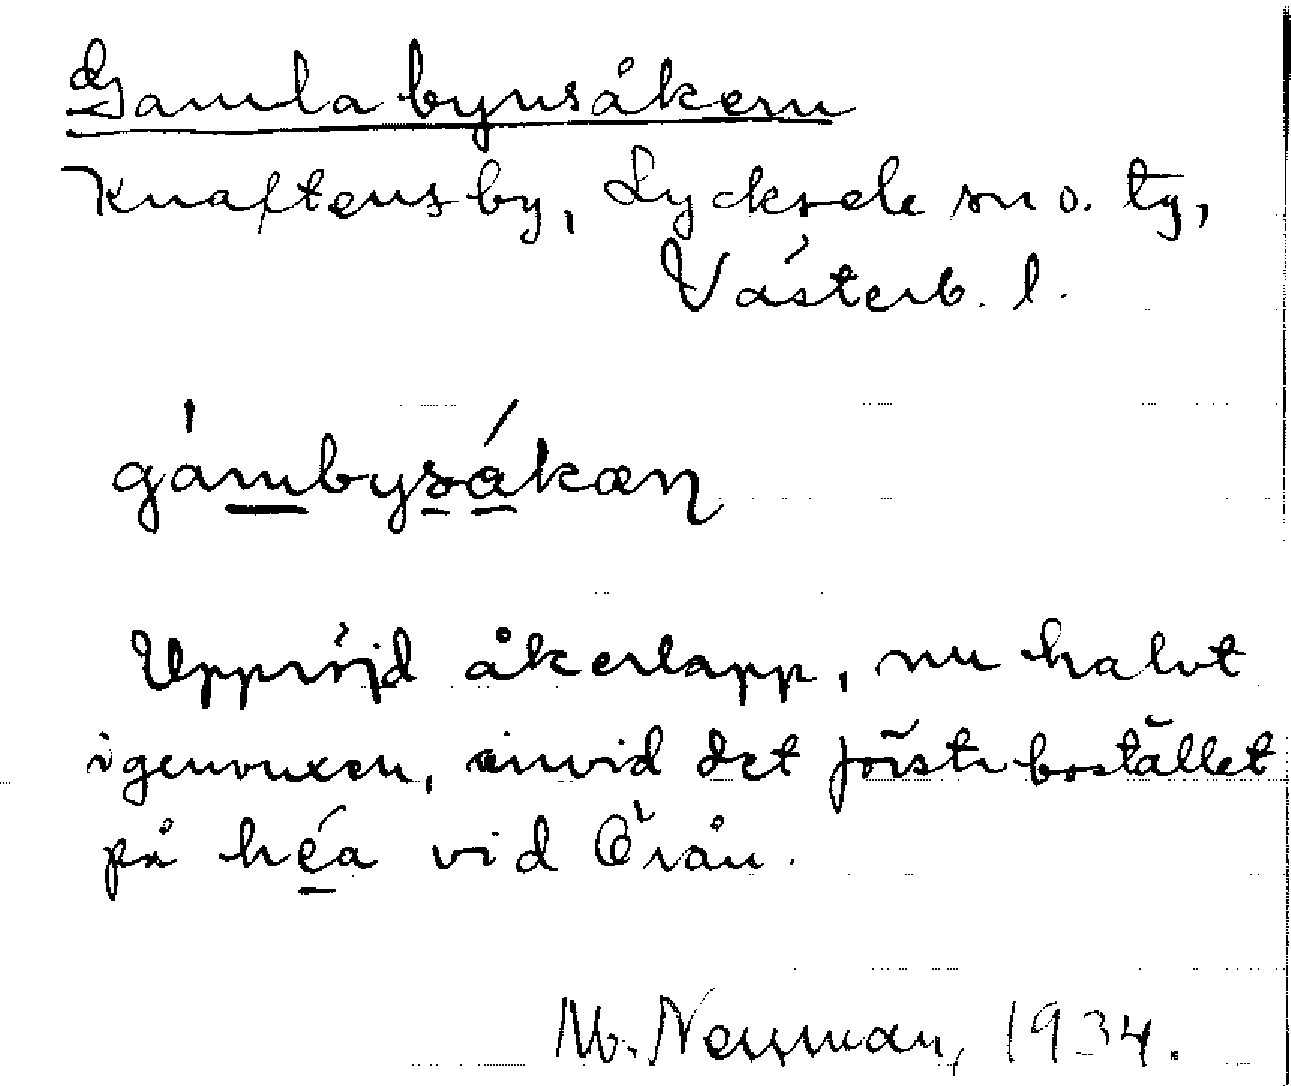 Gamla bynsåkern
Knaftens by, Lycksele sn o. tg,
Västerb. l.
gámbysåkæn
Uppröjd åkerlapp, nu halvt
igenvuxen, invid det första bostället
på héa vid Örån.
M. Neyman, 1934.